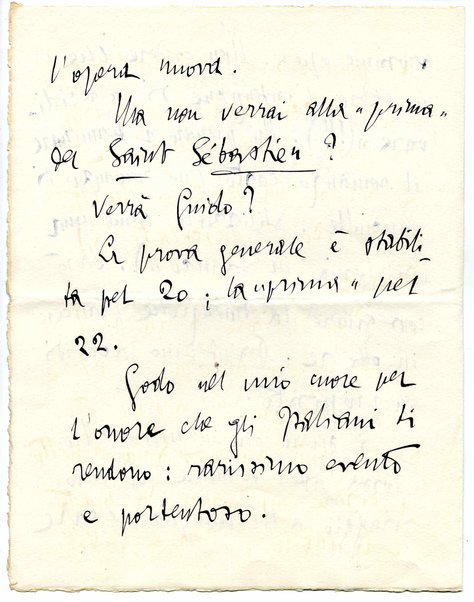 l'opera nuova.
Ma non verrai alla "prima"
del Saint Sébastien?
Verrà Guido?
La prova generale è stabili-
ta pel 20; la "prima" pel
22.
Godo nel mio cuore per
l'onore che gli Italiani ti
rendono: rarissimo evento
e portentoso.